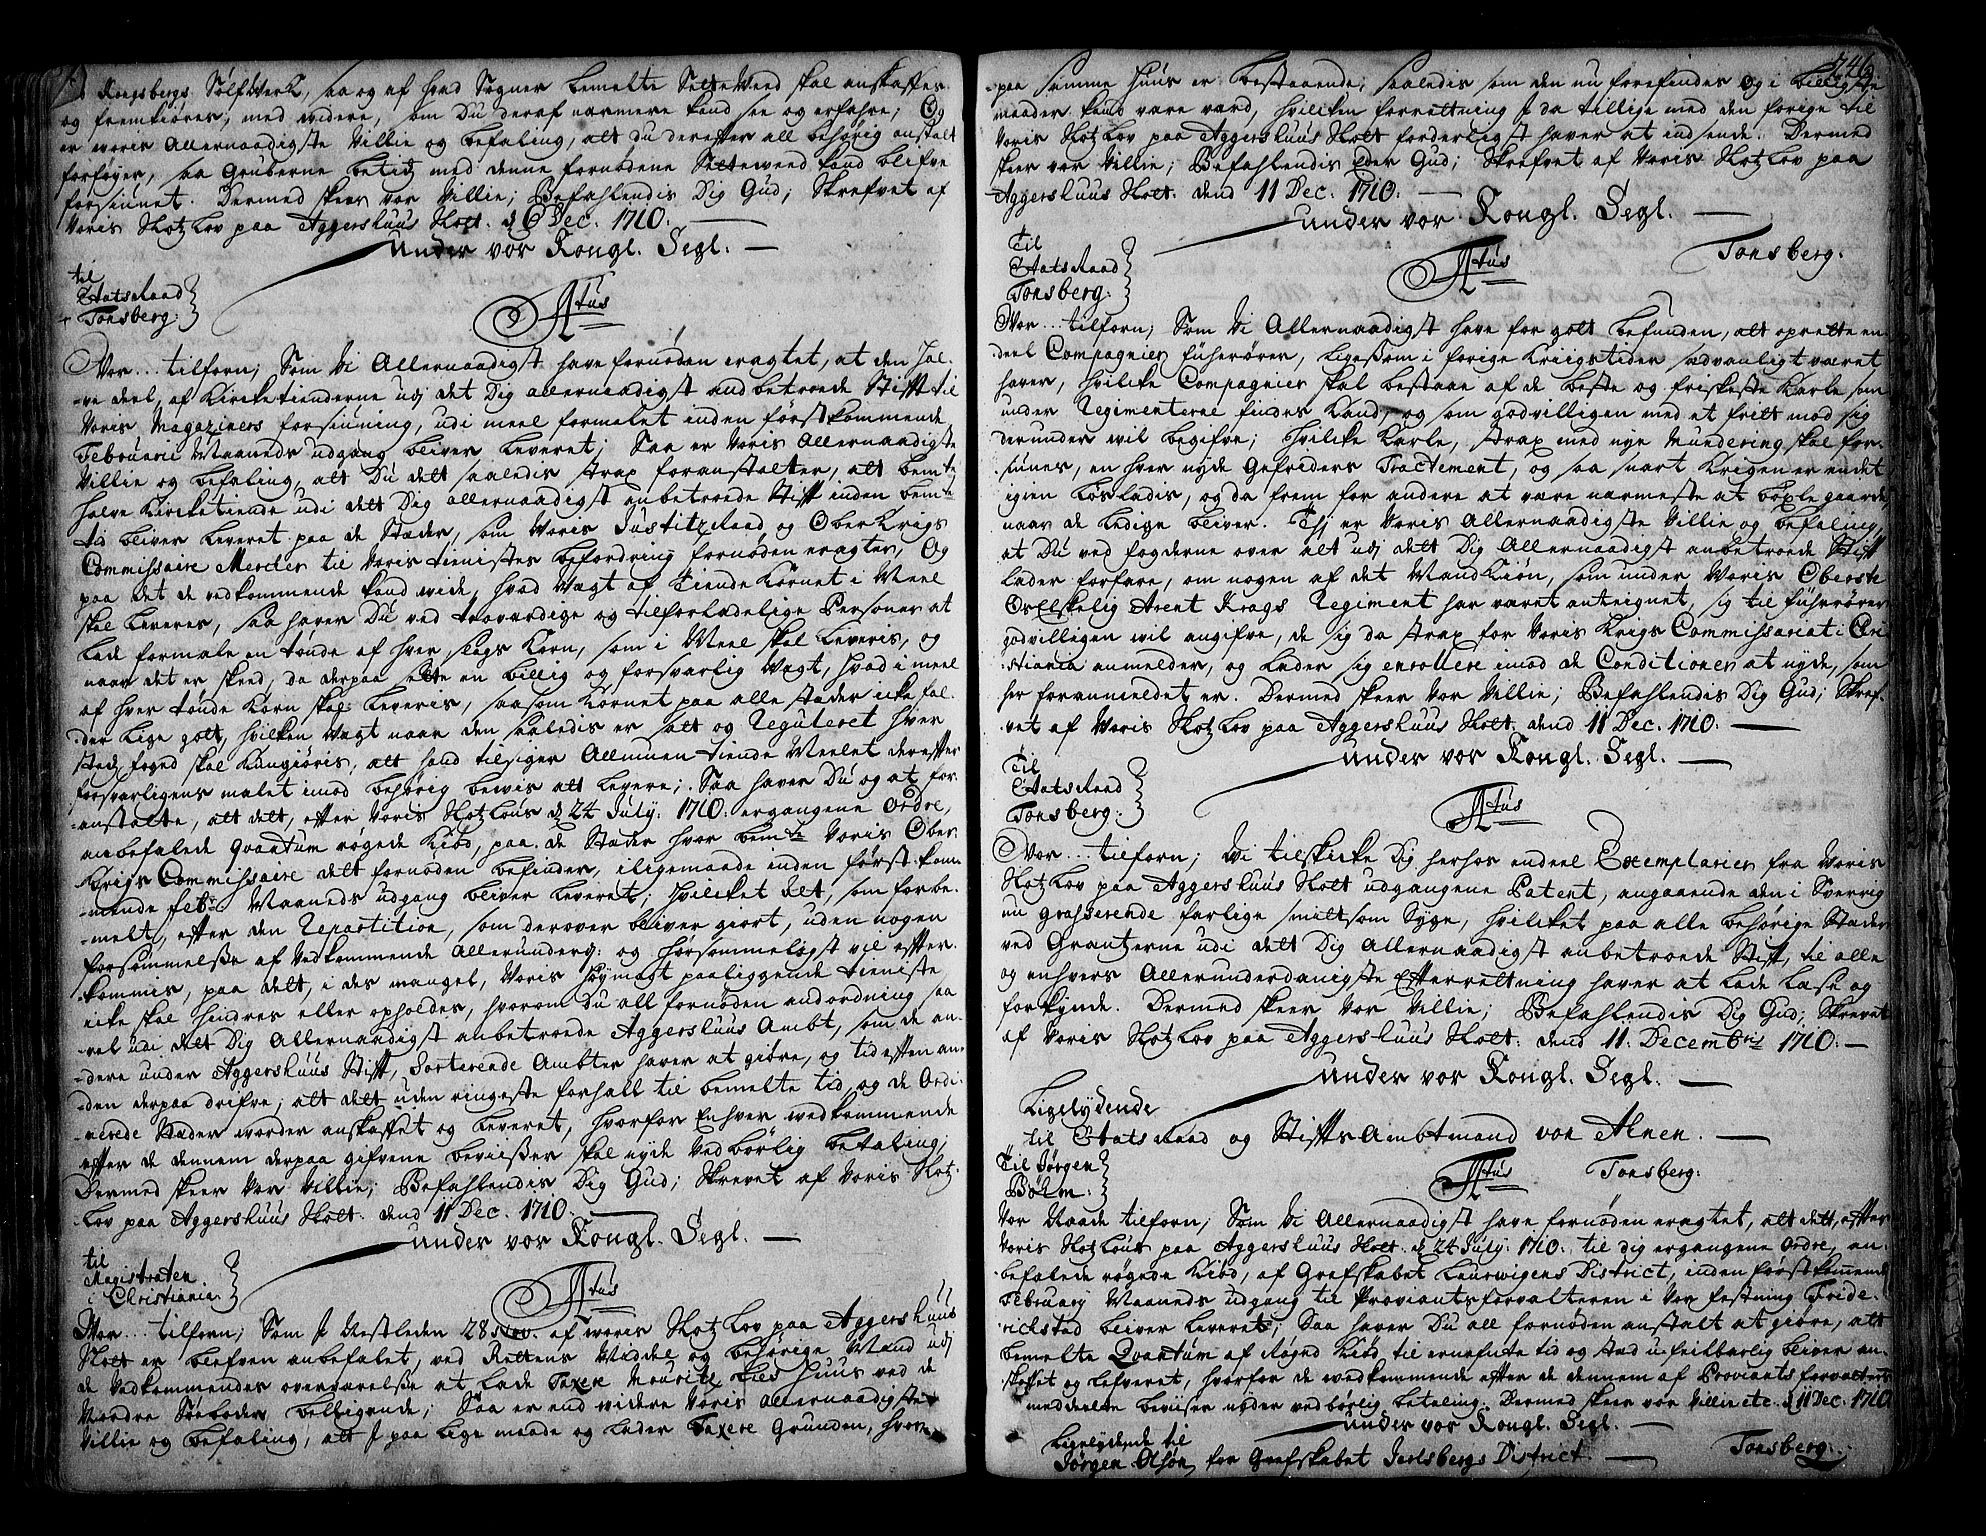 Kongsbergs SølfVerk, saa og af hvad Sogner bemelte SetteVeed skal anskaffes
og fremkiøres, med widere, som Du deraf nærmere kand see og erfahre; Og
er woris Allernaadigste Villie og befaling, att du derefter all behörig anstalt
forføyer, saa Gruberne betids med denne fornødene Setteweed kand blifve
forsiunet. Dermed skeer vor Villie; Befahlendis Dig Gud; Skrefvet af
Voris Slotz Lov paa Aggershuus Slott d 6 Dec. 1710.
under vor Kongl. Segl.
til
Etats Raad
Tonsberg.
Atus
Vor... tilforn; Som Vi Allernaadigst have fornøden eragtet, at den hal-
-ve deel af Kirketienderne udj det Dig allernaadigst andbetroede Stifft til
Voris Magaziners forsiuning, udi meel formalet inden förstkommende
Februarii Maaneds udgang bliver Leveret; Saa er Voris Allernaadigste
Villie og befaling, att Du dett saaledis strax foranstalter, att bemte
halve Kirketiende udi dett Dig allernaadigst anbetroede Stifft inden bemte
tid bliver Leveret paa de Stæder, som Voris Justitz Raad og Ober Krigs
Commissaire Mercker til Voris tienistes befordring fornøden eragter, Og
paa det de vedkommende kand wide, hvad Vægt af Tiende Kornet i Meel
skal Leveres, saa haver Du ved troværdige og tilforladelige Personer at
lade formale en tønde af hver slags Korn, som i Meel skal Leveris, og
naar det er skeed, da derpaa sette en billig og forsvarlig Vægt, hvad i meel
af hver tønde Korn skal Leveris, saasom Kornet paa alle stæder icke fal-
der lige gott, hvilken Vægt naar den saaledis er satt og Reguleret hver
stæds foged skal kungiøris, att hand tilsiger Allmuen tiende Meelet derefter
forsvarligens malet imod behørig bewis att Levere; Saa haver Du og at for-
-anstalte, att det, efter Voris Slotzlovs d 24 July 1710. ergangene Ordre,
anbefalede Qvantum røgede Kiød, paa de Stæder hvor bemte Voris Ober
Krigs Commissaire dett fornøden befinder, iligemaade inden först kom-
-mende Febr. Maaneds udgang bliver Leveret, hvilket alt, som forbe-
-melt, efter den Repartition, som derover bliver giort, uden nogen
forsømmelse af Vedkommende Allerunderd. og hørsommeligst vil efter-
kommis, paa dett, i des mangel, Voris høymagt paaliggende tieniste
icke skal hindres eller opholdes, hvorom Du all fornøden andordning saa
vel udi dett Dig Allernaadigst anbetroede Aggershuus Ambt, som de an-
-dere under Aggershuus Stifft, Sorterende Ambter haver at giøre, og tid efter an-
-den derpaa drifve; att dett uden ringeste forhall til bemelte tid og de Ordi-
nerede Stæder worder anskaffet og Leveret, hvorfor Enhver vedkommende
efter de dennem derpaa gifvene bevisser skal nyde Vedbörlig betaling;
Dermed skeer Vor Villie; Befahlendis Dig Gud; Skrevet af Voris Slotz
Lov paa Aggershuus Slott dend 11 Dec. 1710.
under vor Kongl. Segl.
til
Magistraten
i Christiania
Atus
Vor... tilforn; Som I Vestleden 28 Nov. af woris Slotz Lov paa Aggershuus
Slott er blefven anbefalet, ved Rettens Middel og behörige Mænd udj
de Vedkommendes overværelse at lade Taxere Mouritz huus ved de
Nordre Søeboder belliggende; Saa er end widere Voris Allernaadigste
Villie og befaling, att I paa lige maade og lader Taxere Grunden, hvor-
-paa samme huus er bestaaende, saaledis som den nu forefindes og i billigste
maader kand være værd, hvilken forretning I da tillige med den forige til
Voris Slotz Lov paa Aggershuus Slott forderligst haver at indsende. Dermed
skeer vor Villie; Befahlendis Eder Gud; Skrefvet af Voris Slotz Lov paa
Aggershuus Slott dend 11 Dec. 1710.
under vor Kongl. Segl.
Tonsberg.
Til
Etats Raad
Tonsberg.
Atus
Vor... tilforn; Som Vi Allernaadigst have for gott befunden, att oprette en-
deel Compagnier füherører, ligesom i forige Kriigstider sædvanligt været
haver, hvilcke Compagnier skal bestaae af de beste og friskeste Karle som
under Regimenterne findes kand, og som godvilligen med et fritt mod sig
derunder wil begifve; hvilcke Karle, strax med nye Mundering skal for-
siunes, en hver nyde Gefriders Tractement, og saa snart Krigen er endet
igien losladis, og da frem for andere at være nærmeste at böxle gaarde
naar de ledige bliver. Thj er Voris Allernaadigste Villie og befaling,
at Du ved fogderne over alt udj dett Dig Allernaadigst anbetroede Stifft
lader forfare, om nogen af det Mandkiøn, som under Voris Oberste
Os Elskelig Arent Krags Regiment har været anteignet, sig til führører
godvilligen wil angifve, de sig da strax for Voris Krigs Commissariat i Chri-
stiania anmelder, og lader sig enrollere imod de Conditioner at nyde, som
her foranmeldet er. Dermed skeer Vor Villie; Befahlendis Dig Gud; Skref-
vet af Voris Slotz Lov paa Aggershuus Slott dend 11 Dec. 1710.
under vor Kongl. Segl.
Til
Etats Raad
Tonsberg.
Atus
Vor... tilforn; Vi tilskicke Dig herhos endeel Exemplarier fra Voris
Slotz Lov paa Aggershuus Slott udgangene Patent, angaaende den i Sverrig
nu grasserende farlige smitsom Syge, hvilcket paa alle behörige Stæder
ved Grentzerne udi dett Dig Allernaadigst anbetroede Stifft, til alle
og enhvers Allerunderdanigste Efterrettning haver at lade læse og
forkynde. Dermed skeer Vor Villie; Befahlendis Dig Gud; Skrevet
af Voris Slotz Lov paa Aggershuus Slott. dend 11. Decembris 1710.
under vor Kongl. Segl.
Ligelydende
til Etats Raad og Stiffts Ambtmand von Ahnen.
Til Jørgen
Böhm.
Atus
Tonsberg.
Vor Naade tilforn; Som Vi Allernaadigst have fornøden eragtet, att dett, efter
Voris Slotslovs paa Aggershuus Slott d 24 July 1710. til dig ergangene Ordre, an-
befalede røgede Kiød, af Grefskabet Laurwigens District, inden förstkomende
February Maaneds udgang til Proviantsforvalteren i Vor festning Fride-
richstad bliver Leveret; Saa haver Du all fornøden anstalt at giøre, att
bemelte Qvantum af Røged Kiöd til ernefnte tid og sted ufeilbarlig bliver an-
skaffet og lefveret, hvorfor de wedkommende efter de dennem af Proviants forvalteren
meddeelte beviser nyder vedbørlig betaling. Dermed skeer vor Villie etc. d 11 Dec. 1710
under vor Kongl. Segl.
Ligelydende til
Jørgen Olsøn for Grefskabet Jarlsbergs District.
Tonsberg.